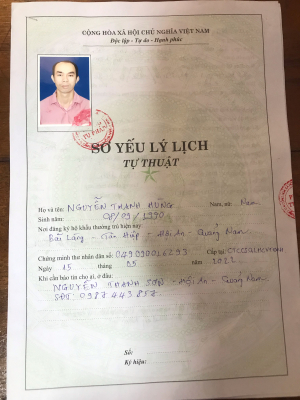 CỘNG HÒA XÃ HỘI CHỦ NGHĨA VIỆT NAM
Độc lập - Tự do - Hạnh phúc
SƠ YẾU LÝ LỊCH
TỰ THUẬT
Họ và tên: NGUYỄN THANH HÙNG Nam, nữ: Nam
Sinh năm: 1990
Nơi đăng ký hộ khẩu thường trú hiện nay:
Bãi Làng - Tân Hiệp - Hội An - Quảng Nam
Chứng minh thư nhân dân số: 049090016293 Cấp tại:
Ngày 15 tháng 05 năm 2022
Khi cần báo tin cho ai, ở đâu:
NGUYỄN THANH SƠN - Hội An - Quảng Nam
SĐT: 0987 443 857
Số:
Ký hiệu: